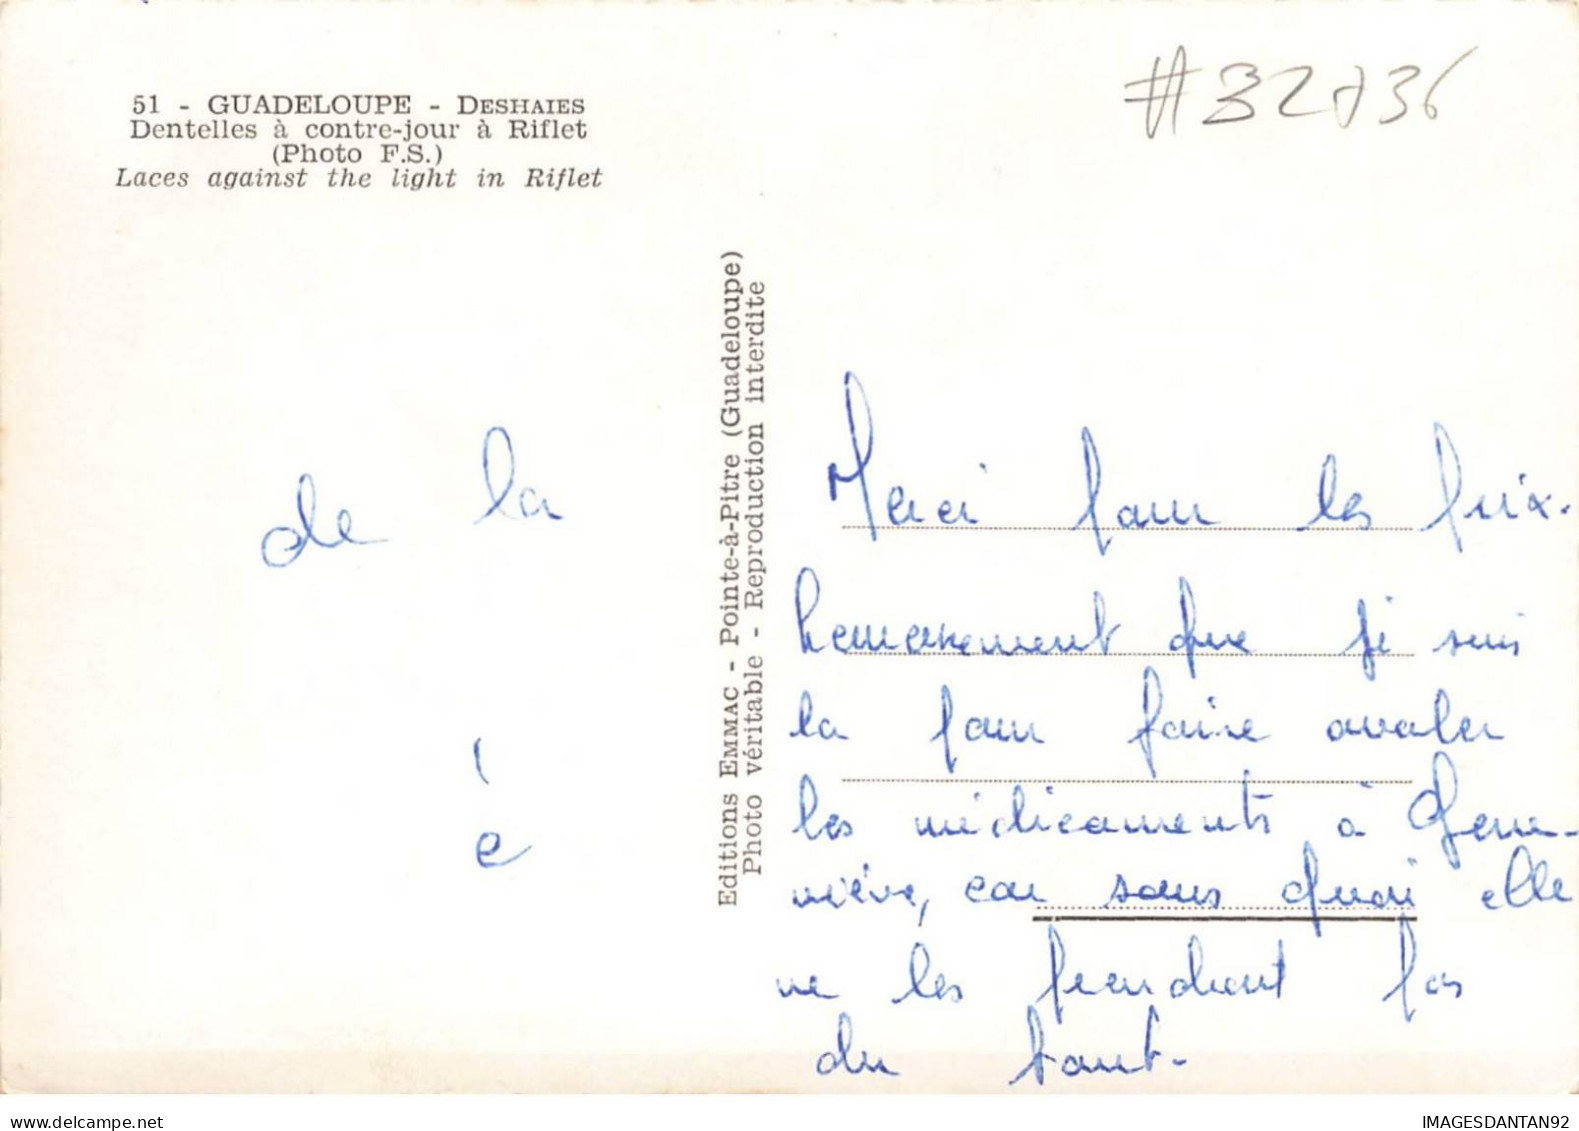 51 - GUADELOUPE - DESHAIES
Dentelles à contre-jour à Riflet
(Photo F.S.)
Laces against the light in Riflet
#32736
Editions EMMAC - Pointe-à-Pitre (Guadeloupe)
Photo véritable - Reproduction interdite
de la
e
Merci pour les prix.
Heureusement que je suis
la pour faire avaler
les médicaments à Gene-
viève, car sans quoi elle
ne les prendrait pas
du tout.
de la com
IMAGESDANTAN92